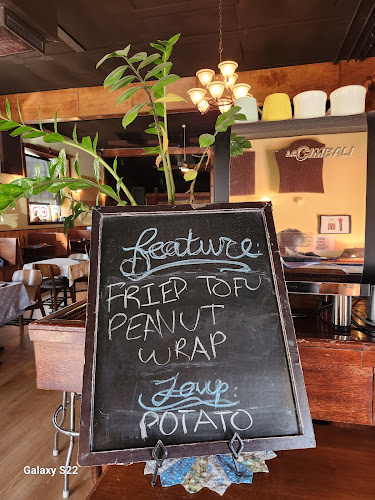 LACIMBALI
feature:
FRIED TOFU
PEANUT
WRAP
Soup:
POTATO
Galaxy S22